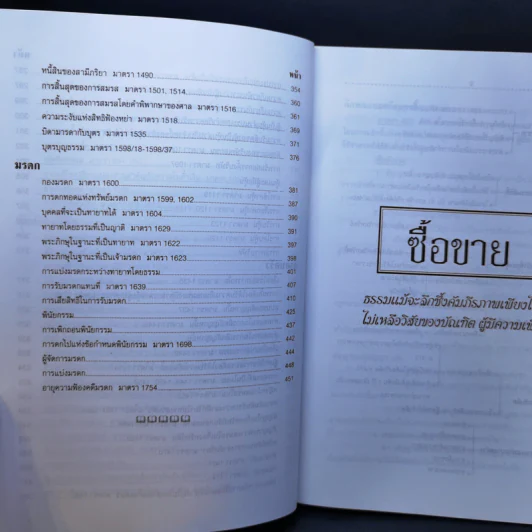 หน้า
หนี้สินของสามีภริยา มาตรา 1490 354
การสิ้นสุดของการสมรส มาตรา 1501, 1514 360
การสิ้นสุดของการสมรสโดยคำพิพากษาของศาล มาตรา 1516 361
ความระงับแห่งสิทธิฟ้องหย่า มาตรา 1518 369
บิดามารดากับบุตร มาตรา 1535 371
บุตรบุญธรรม มาตรา 1598/18-1598/37 376
มรดก
กองมรดก มาตรา 1600 381
การตกทอดแห่งทรัพย์มรดก มาตรา 1599, 1602 388
บุคคลที่จะเป็นทายาทได้ มาตรา 1604 389
ทายาทโดยธรรมที่เป็นญาติ มาตรา 1629 393
พระภิกษุในฐานะที่เป็นทายาท มาตรา 1622 397
พระภิกษุในฐานะที่เป็นเจ้ามรดก มาตรา 1623 398
การแบ่งมรดกระหว่างทายาทโดยธรรม 401
การรับมรดกแทนที่ มาตรา 1639 407
การเสียสิทธิในการรับมรดก 410
พินัยกรรม 425
การเพิกถอนพินัยกรรม 437
การตกไปแห่งข้อกำหนดพินัยกรรม มาตรา 1698 442
ผู้จัดการมรดก 444
การแบ่งมรดก 448
อายุความฟ้องคดีมรดก มาตรา 1754 451
ซื้อขาย
ธรรมแม้จะลึกซึ้งคัมภีรภาพเพียงใ
ไม่เหลือวิสัยของบัณฑิต ผู้มีความเพ